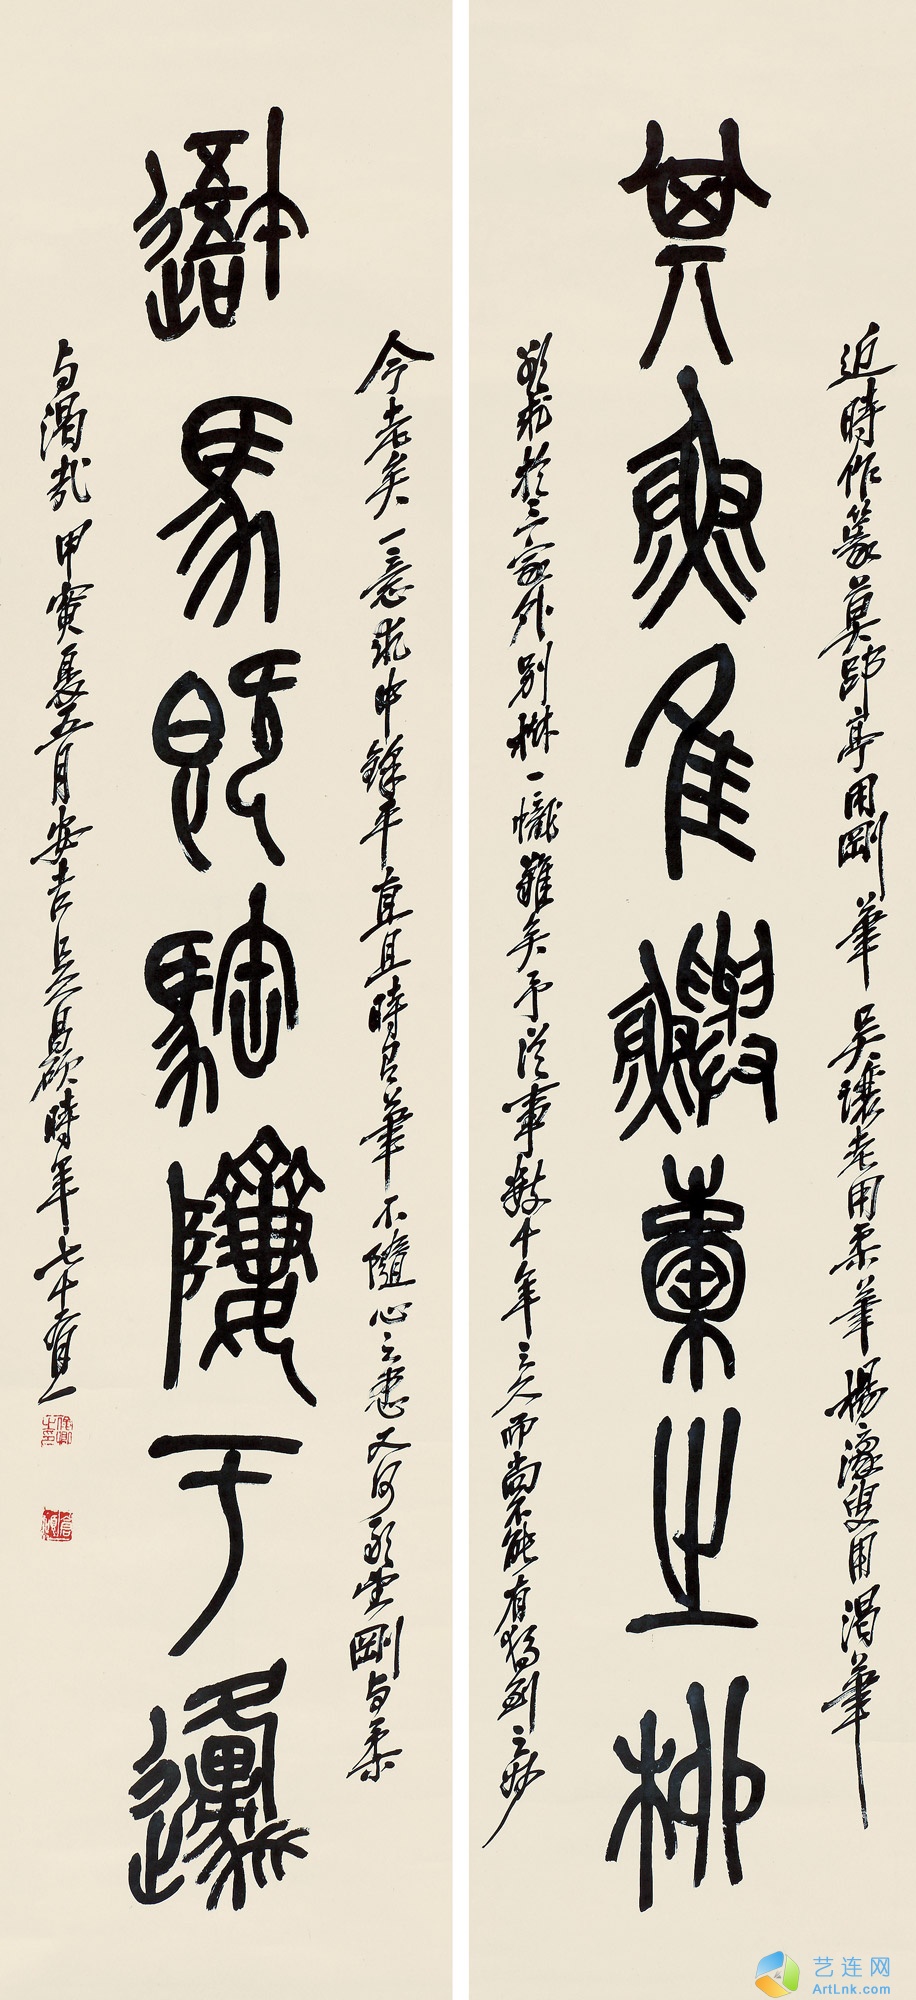 其魚隹鱮橐之柳
近時作篆莫郘亭用剛筆吳讓老用柔筆楊濠叟用渴筆
欲求於三家外別樹一幟難矣予從事數十年之久而尚不能有獨到之妙
馬既騊于邍
今老矣一意求中鋒平直且時有筆不隨心之患又何敢望剛与柔
与渴哉甲寅夏五月安吉吳昌碩時年七十有一
艺连网
ArtLnk.com